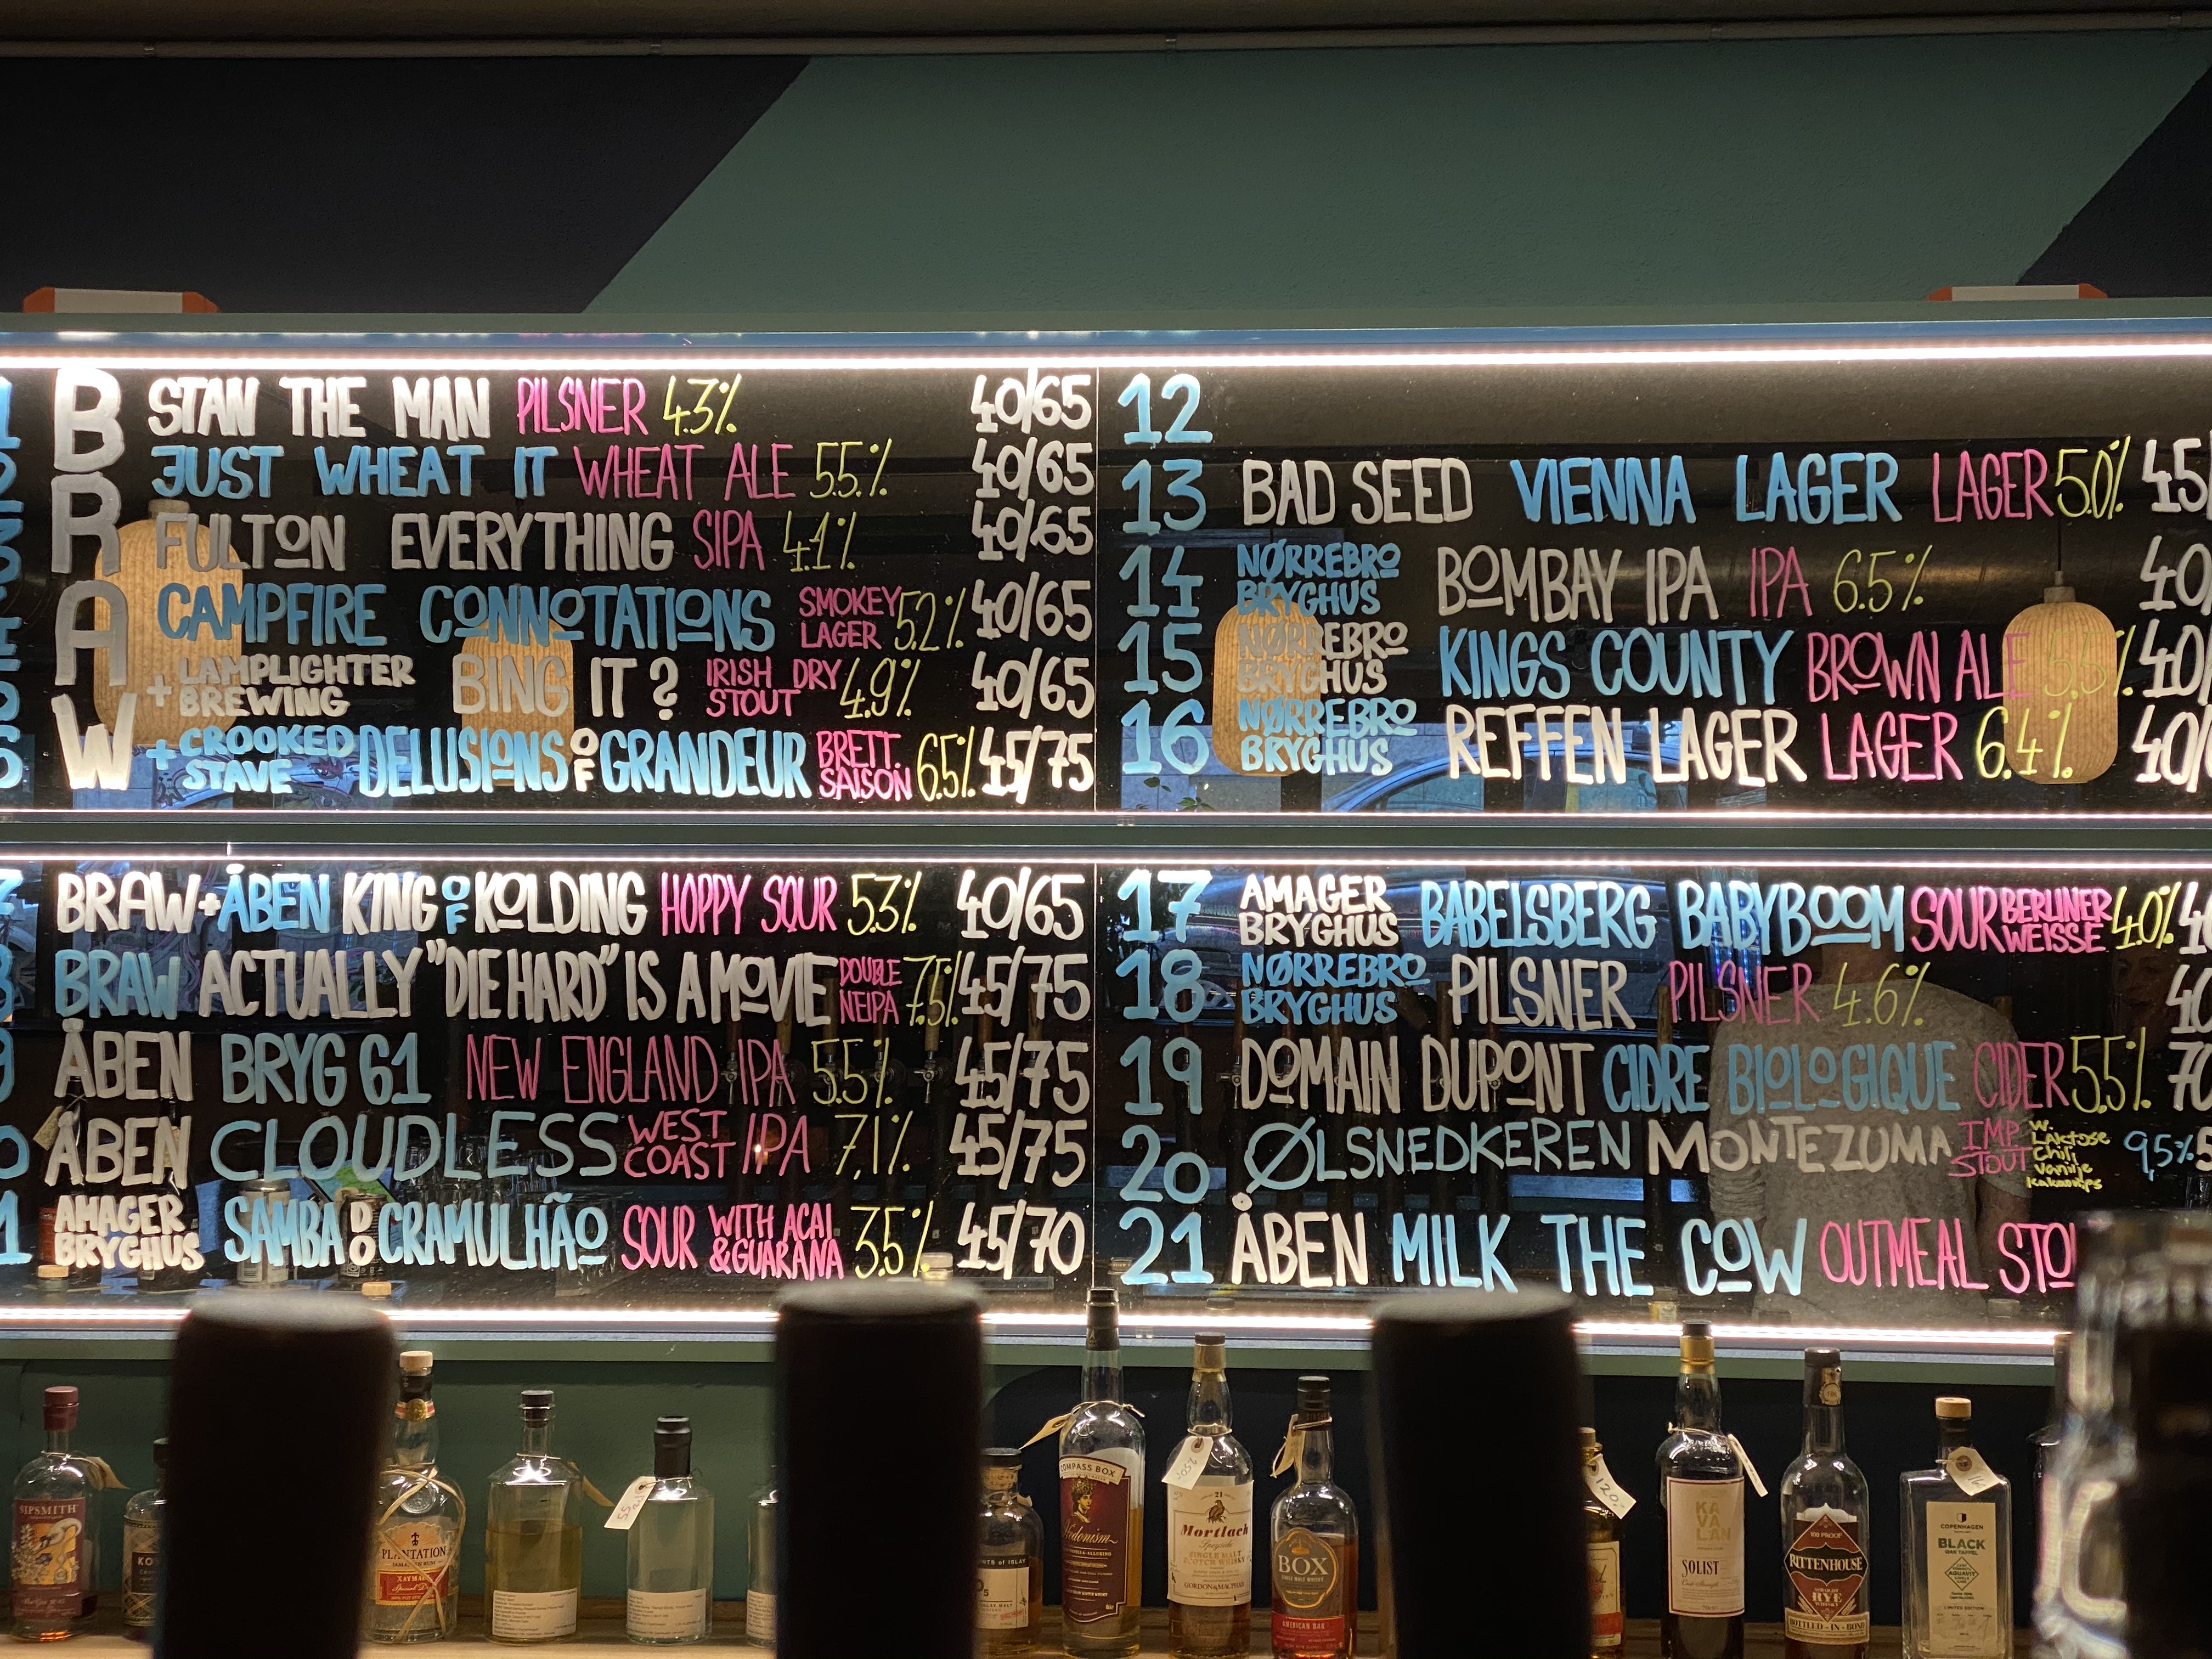 BRAW
STAN THE MAN PILSNER 4.3% 40/65
JUST WHEAT IT WHEAT ALE 5.5% 40/65
FULTON EVERYTHING SIPA 4.1% 40/65
CAMPFIRE CONNOTATIONS SMOKEY LAGER 5.2% 40/65
+ LAMPLIGHTER BREWING BING IT? IRISH DRY STOUT 4.9% 40/65
+ CROOKED STAVE DELUSIONS OF GRANDEUR BRETT. SAISON 6.5% 45/75
BRAW+ÅBEN KING OF KOLDING HOPPY SOUR 5.3% 40/65
BRAW ACTUALLY "DIE HARD" IS A MOVIE DOUBLE NEIPA 7.5% 45/75
ÅBEN BRYG 61 NEW ENGLAND IPA 5.5% 45/75
ÅBEN CLOUDLESS WEST COAST IPA 7,1% 45/75
AMAGER BRYGHUS SAMBA DO CRAMULHÃO SOUR WITH ACAI & GUARANA 3.5% 45/70
12
13 BAD SEED VIENNA LAGER LAGER 5.0% 45/
14 NØRREBRO BRYGHUS BOMBAY IPA IPA 6.5% 40
15 NØRREBRO BRYGHUS KINGS COUNTY BROWN ALE 5.5% 40/
16 NØRREBRO BRYGHUS REFFEN LAGER LAGER 6.4% 40/
17 AMAGER BRYGHUS BABELSBERG BABYBOOM SOUR BERLINER WEISSE 4.0%
18 NØRREBRO BRYGHUS PILSNER PILSNER 4.6% 40
19 DOMAIN DUPONT CIDRE BIOLOGIQUE CIDER 5.5% 70
20 ØLSNEDKEREN MONTEZUMA IMP STOUT W. Laktose Chili Vanilje 9,5%
21 ÅBEN MILK THE COW OUTMEAL STOU
SIPSMITH
PLANTATION
XAYMACA
Special Dry
COMPASS BOX
Hedonism
250,-
21
Mortlach
Speyside
SINGLE MALT
SCOTCH WHISKY
GORDON & MACPHAIL
BOX
AMERICAN OAK
120,-
KAVALAN
SOLIST
100 PROOF
RITTENHOUSE
STRAIGHT
RYE
WHISKY
BOTTLED-IN-BOND
COPENHAGEN
BLACK
AQUAVIT
LIMITED EDITION